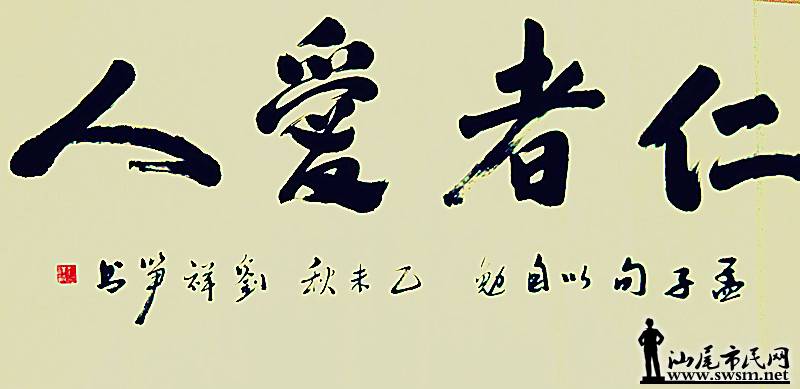 仁者愛人
孟子句以自勉 乙未秋 劉祥笋书
汕尾市民网
www.swsm.net